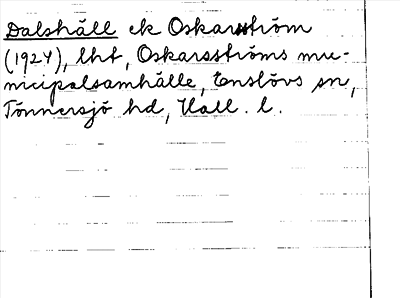 Dalshäll ek Oskarström
(1924), lht, Oskarsströms mu-
nicipalsamhälle, Enslövs sn,
Tönnersjö hd, Hall. l.